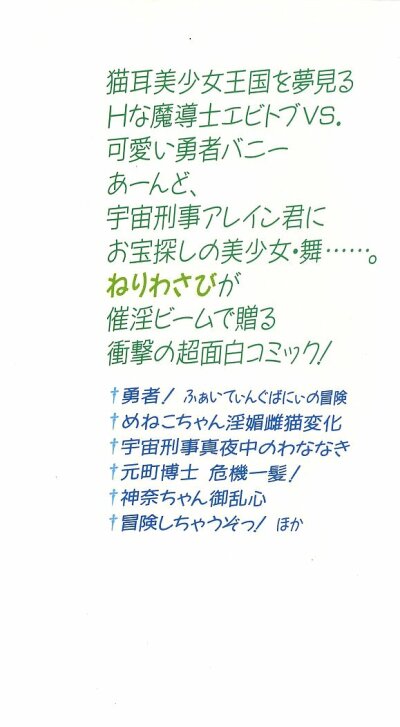 猫耳美少女王国を夢見る
Hな魔導士エビトブVS.
可愛い勇者バニー
あーんど、
宇宙刑事アレイン君に
お宝探しの美少女・舞……。
ねりわさびが
催淫ビームで贈る
衝撃の超面白コミック!
†勇者! ふぁいてぃんぐばにぃの冒険
†めねこちゃん淫媚雌猫変化
†宇宙刑事真夜中のわななき
†元町博士 危機一髪!
†神奈ちゃん御乱心
†冒険しちゃうぞっ! ほか